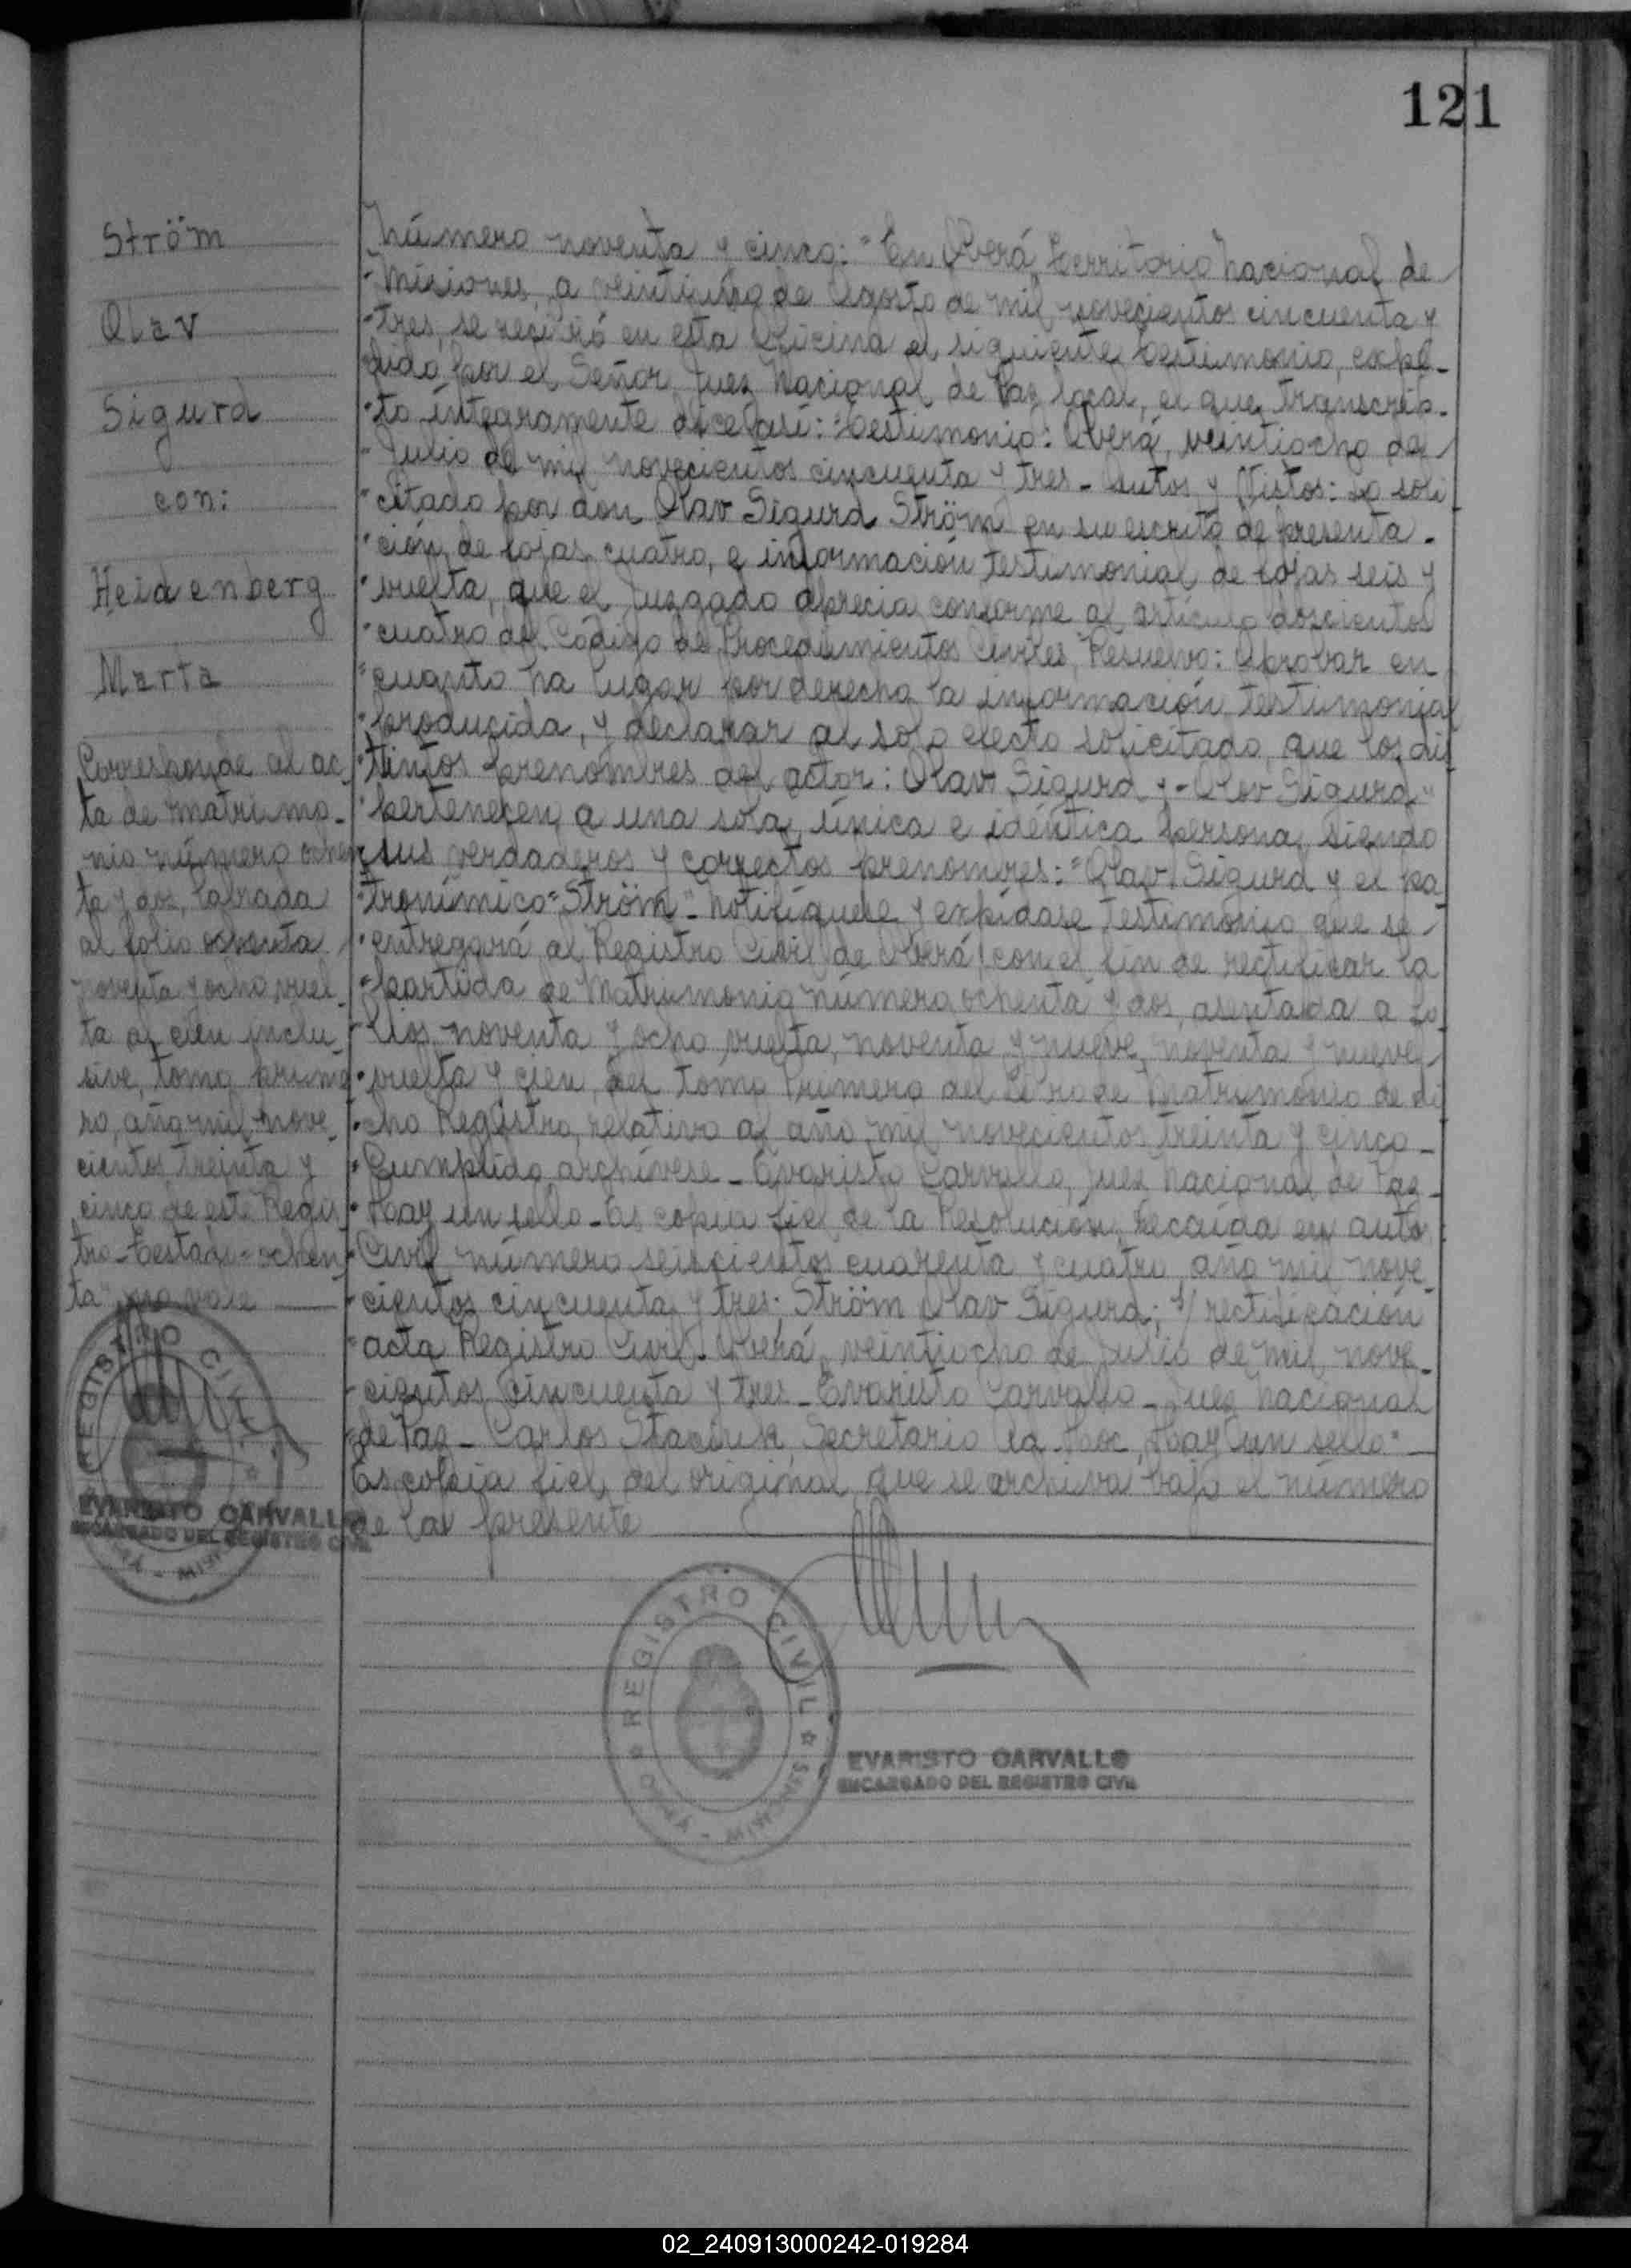 121
Ström
Olav
Sigurd
con:
Heidenberg
Marta
Corresponde al ac
ta de matrimo-
nio número ochen
ta y dos, labrada
al folio ochenta
noventa y ocho vuel-
ta al cien inclu-
sive, tomo prime
ro, año mil nove-
cientos treinta y
cinco de este Regis
tro - Testado = ochen
ta" no vale
Número noventa y cinco: "En Oberá, Territorio Nacional de
"Misiones, a de Agosto de mil novecientos cincuenta y
"tres, se recibió en esta Oficina el siguiente testimonio, expe-
dido por el Señor Juez Nacional de Paz local, el que transcrip-
"to íntegramente dice así: "Testimonio: Oberá, veintiocho de
"Julio de mil novecientos cincuenta y tres - Autos y Vistos: Lo soli
"citado por don Olav Sigurd Ström en su escrito de presenta-
"ción de fojas cuatro, e información testimonial de fojas seis y
"vuelta, que el Juzgado aprecia conforme al artículo doscientos
"cuatro del Código de Procedimientos Civiles, Resuelvo: Aprobar en
"cuanto ha lugar por derecho la información testimonial
"producida, y declarar al solo efecto solicitado, que los dis
"tintos prenombres del actor: Olav Sigurd y - Olov Sigurd"
"pertenecen a una sola, única e idéntica persona, siendo
"sus verdaderos y correctos prenombres: "Olav Sigurd y el pa
"tronímico "Ström" - Notifíquese y expídase testimonio que se
"entregará al Registro Civil de Oberá con el fin de rectificar la
"partida de Matrimonio número ochenta y dos, asentada a fo
"lios noventa y ocho vuelta, noventa y nueve, noventa y nueve
"vuelta y cien, del tomo Primero del Libro de Matrimonio de di
"cho Registro, relativo al año mil novecientos treinta y cinco -
"Cumplido archívese - Evaristo Carvallo, Juez Nacional de Paz -
"Hay un sello - Es copia fiel de la Resolución recaída en auto
"Civil número seiscientos cuarenta y cuatro, año mil nove
"cientos cincuenta y tres; Ström Olav Sigurd; s/ rectificación
"acta Registro Civil. Oberá, veintiocho de Julio de mil nove-
"cientos cincuenta y tres - Evaristo Carvallo - Juez Nacional
"de Paz - Carlos Staciuk, Secretario Ad-hoc, Hay un sello" -
Es copia fiel del original que se archiva bajo el número
de la presente
REGISTRO CIVIL
EVARISTO CARVALLO
ENCARGADO DEL REGISTRO CIVIL
REGISTRO CIVIL
EVARISTO CARVALLO
ENCARGADO DEL REGISTRO CIVIL
02_240913000242-019284